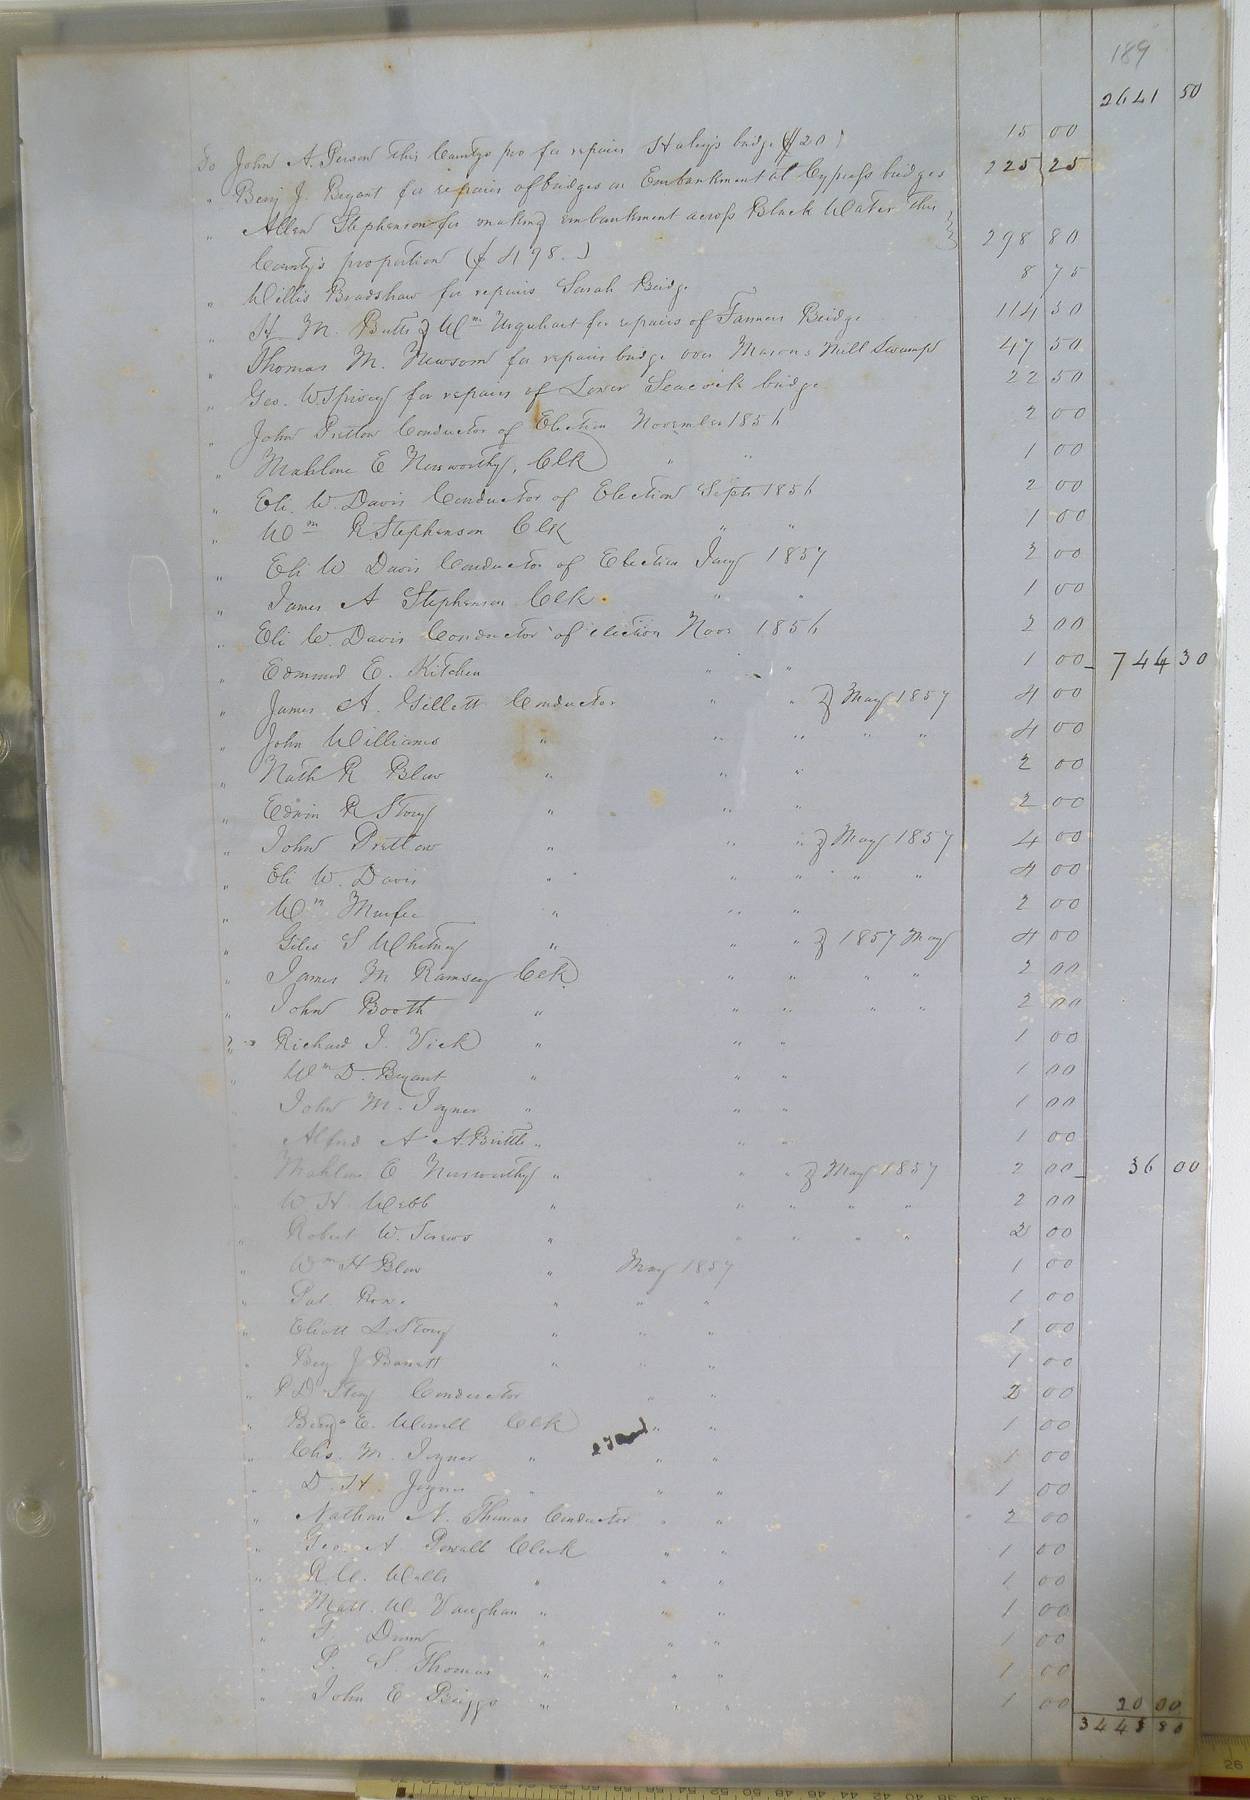 189
2641 50
To John A. Person this Countys pro for repairs Haleys bridge ($20) 15 00
" Benj J. Bryant for repairs of bridges on Embankment at Cypress bridges 225 25
" Allen Stephenson for making embankment across Black Water this
County's proportion ($498.) 298 80
" Willis Bradshaw for repairs Sarah Bridge 8 75
" M. Butts & Wm Urquhart for repairs of Farmers Bridge 114 50
" Thomas M. Newsom for repairs bridge over Masons Mill Swamp 47 50
" Geo. W. Spivey for repairs of Lower Seacock bridge 22 50
" John Pretlow Conductor of Election November 1856 2 00
" Mahlone E Norsworthy, Clk " " 1 00
" Eli W. Davis Conductor of Election Sept 1856 2 00
" Wm R Stephenson Clk " " 1 00
" Eli W Davis Conductor of Election Jany 1857 2 00
" James A Stephenson Clk " " 1 00
" Eli W. Davis Conductor of election Novr 1856 2 00
" Edmund E. Kitchen " " 1 00 744 30
" James A. Gillett Conductor " " & May 1857 4 00
" John Williams " " " " " 4 00
" Nath R Blow " " " 2 00
" Edwin R Story " " " 2 00
" John Pretlow " " " & May 1857 4 00
" Eli W. Davis " " " " " 4 00
" Wm Murfee " " " 2 00
" Giles S Whitney " " " & 1857 May 4 00
" James M Ramsey Clk " " " " 2 00
" John Booth " " " " " 2 00
" Richard J. Vick " " " 1 00
" Wm D. Bryant " " " 1 00
" John M. Joyner " " " 1 00
" Alfred A A. Brittle " " " 1 00
" Mahlone E Norsworthy " " " & May 1857 2 00 36 00
" W H Webb " " " " " 2 00
" Robert W. Screws " " " " " 2 00
" Wm H Blow " May 1857 1 00
" Pat. " " " 1 00
" Eliott L. Story " " " 1 00
" Benj J Barrett " " " 1 00
" P D Story Conductor " " 2 00
" Benj E. Clk " " 1 00
" Chs. M. Joyner " " " 1 00
" D. H. Joyner " " " 1 00
" Nathan N. Thomas Conductor " " 2 00
" Geo A Powell Clerk " " 1 00
" " " " 1 00
" Matt. W. Vaughan " " " 1 00
" Dunn " " " 1 00
" P. S. Thomas " " " 1 00
" John E Briggs " " " 1 00 20 00
3441 80